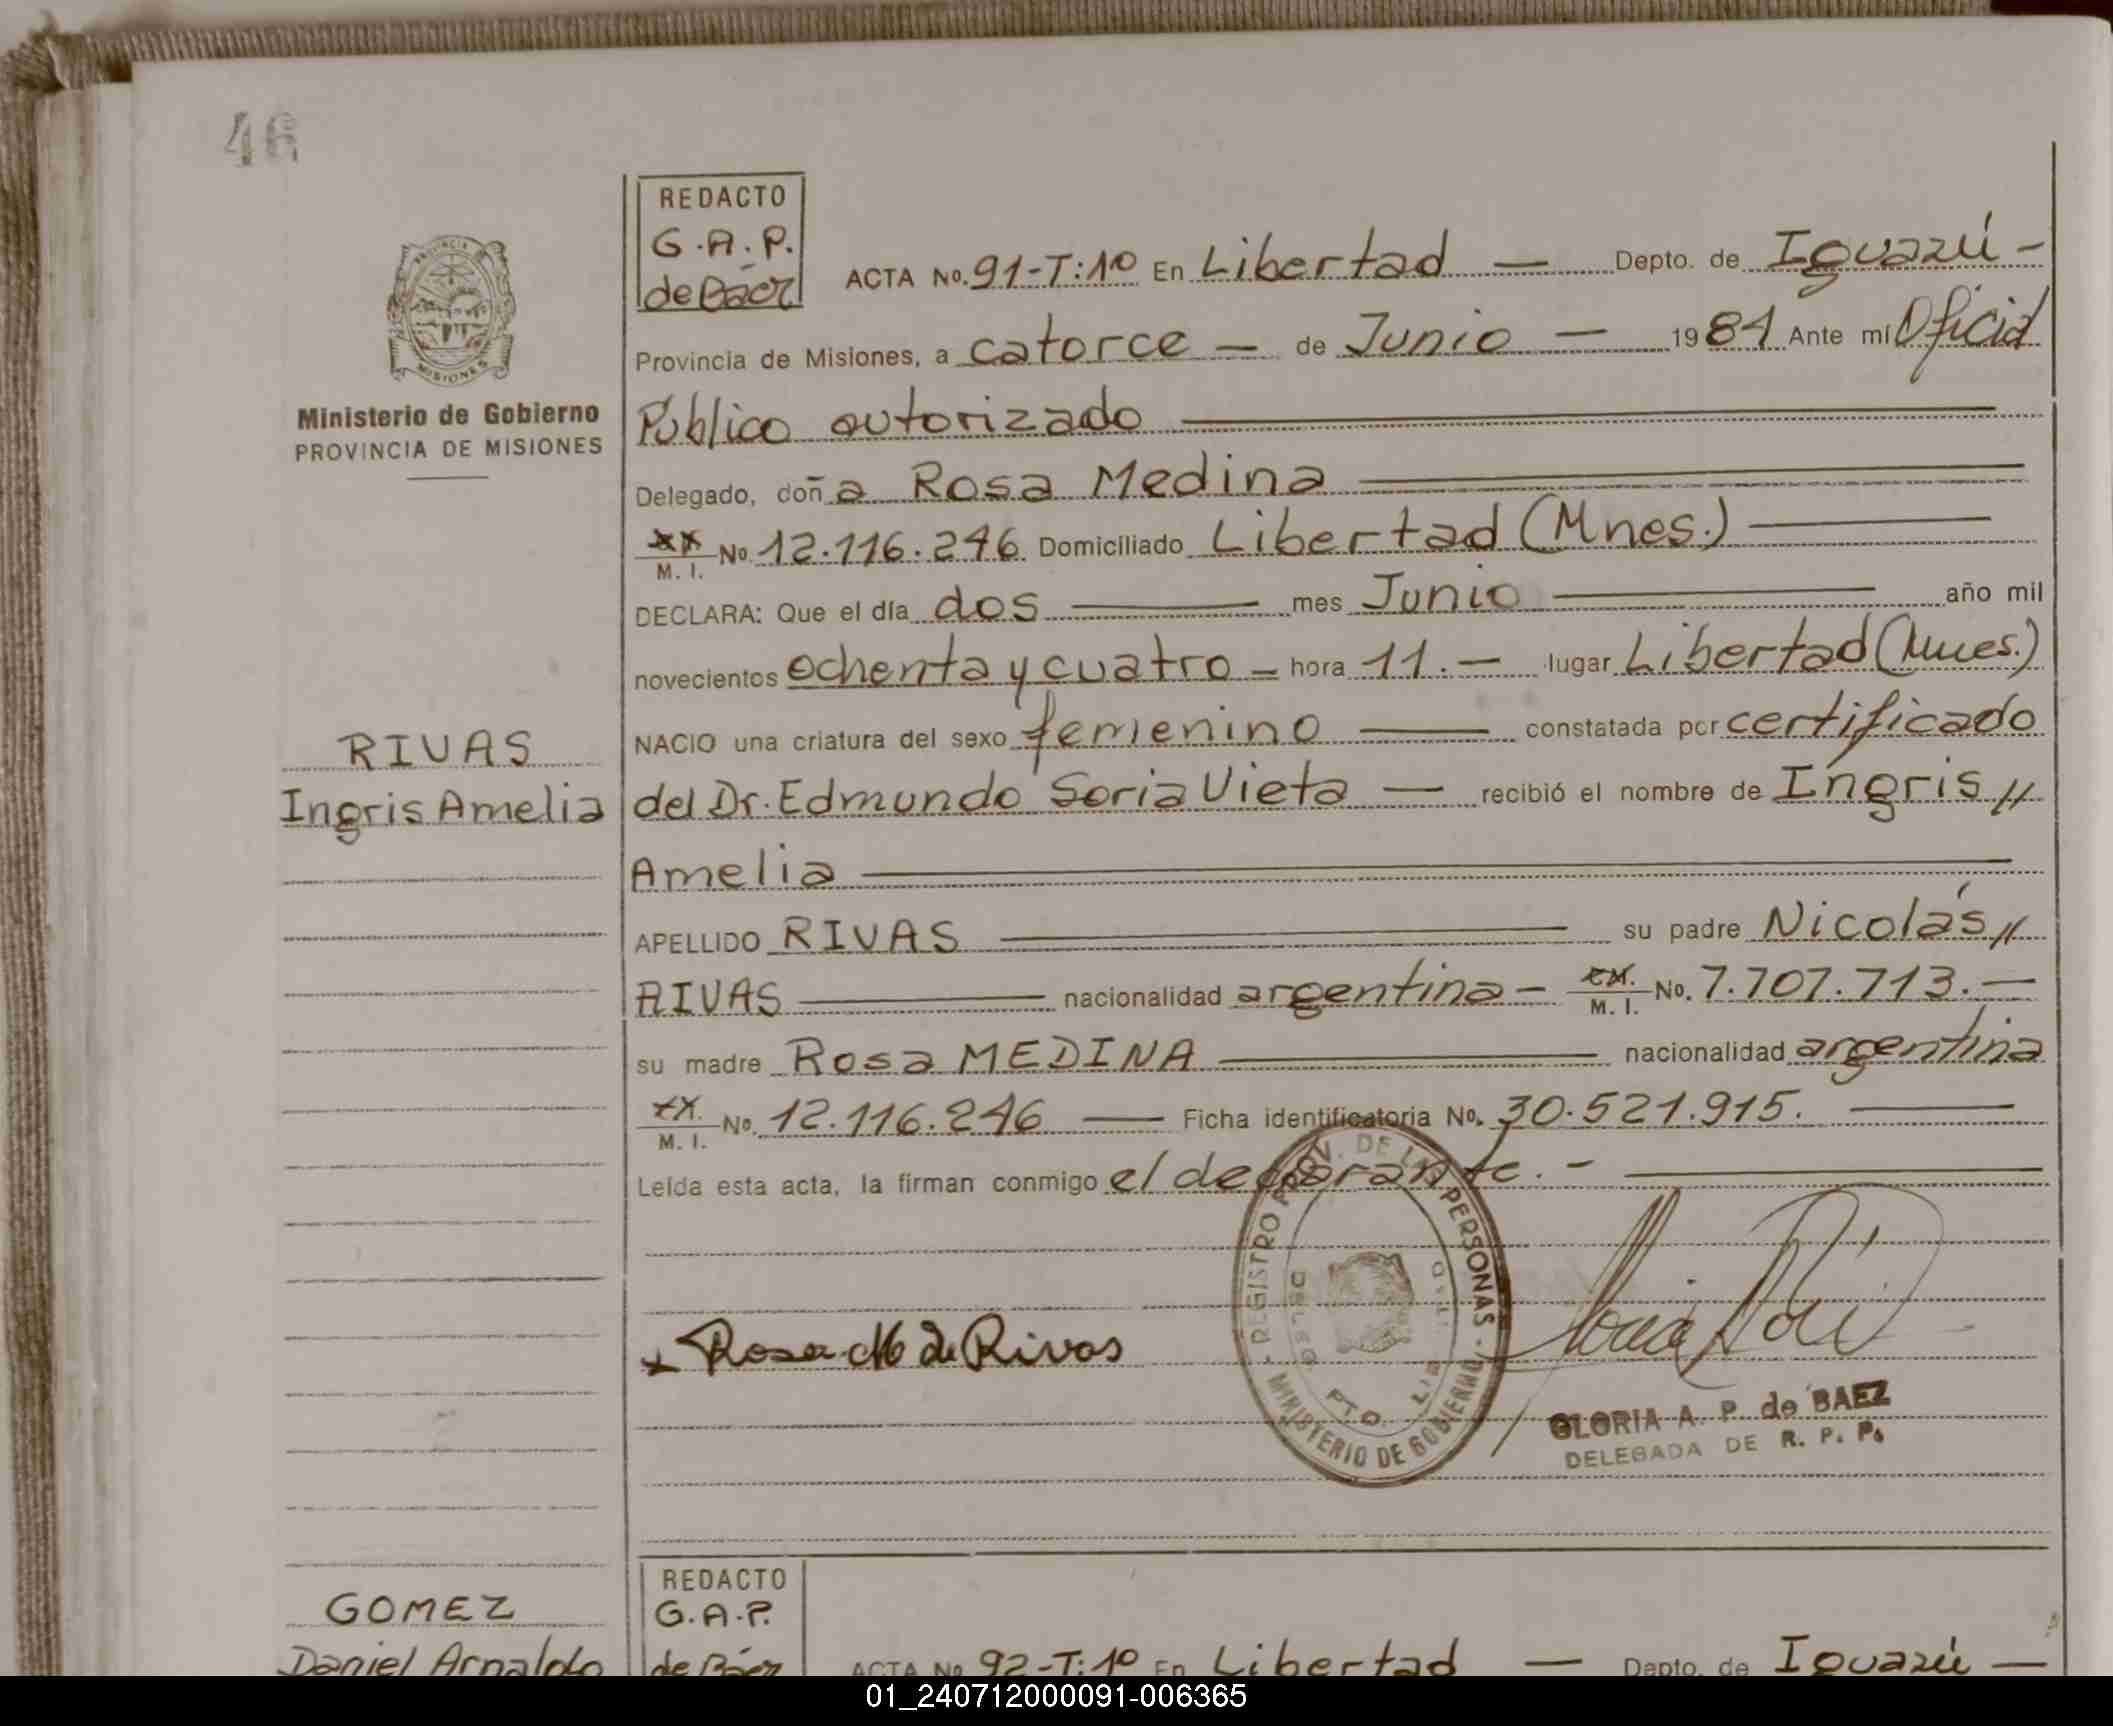 46
REDACTO
G.A.P.
de Báez
ACTA No. 91-T:1º En Libertad — Depto. de Iguazú -
Provincia de Misiones, a catorce — de Junio — 1984 Ante mí Oficial
Público autorizado
Delegado, doña Rosa Medina
M. I. No 12.116.246 Domiciliado Libertad (Mnes.)
DECLARA: Que el día dos mes Junio año mil
novecientos ochenta y cuatro - hora 11.- lugar Libertad (Mnes.)
NACIO una criatura del sexo femenino constatada por certificado
del Dr. Edmundo Soria Vieta — recibió el nombre de Ingris //
Amelia
APELLIDO RIVAS su padre Nicolás //
RIVAS nacionalidad argentina - M. I. No. 7.707.713.-
su madre Rosa MEDINA nacionalidad argentina
M. I. No. 12.116.246 — Ficha identificatoria No. 30.521.915.
Leída esta acta, la firman conmigo el declarante.-
PROVINCIA
MISIONES
Ministerio de Gobierno
PROVINCIA DE MISIONES
RIVAS
Ingris Amelia
x Rosa M de Rivas
REGISTRO PROV. DE LAS PERSONAS
MINISTERIO DE GOBIERNO
PTO. LIB
GLORIA A. P. de BAEZ
DELEGADA DE R. P. P.
GOMEZ
Daniel Arnaldo
REDACTO
G.A.P.
de Báez
ACTA No 92-T:1º En Libertad — Depto. de Iguazú —
01_240712000091-006365